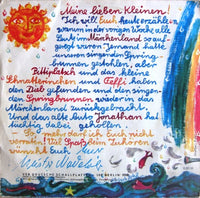 Meine lieben Kleinen!
Ich will Euch heute erzählen
warum in der vorigen Woche alle
Leute im Märchenland so auf-
geregt waren. Jemand hatte
unseren singenden Spring-
brunnen gestohlen, aber
Pittiplatsch und das kleine
Schnatterinchen und Taffi haben
den Dieb gefunden und den singen-
den Springbrunnen wieder in das
Märchenland zurückgebracht.
Und das alte Auto Jonathan hat
tüchtig dabei geholfen.
So mehr darf ich Euch nicht
verraten! Viel Spaß beim Zuhören
wünscht Euch Euer
Meister Nadelöhr
VEB DEUTSCHE SCHALLPLATTEN BERLIN